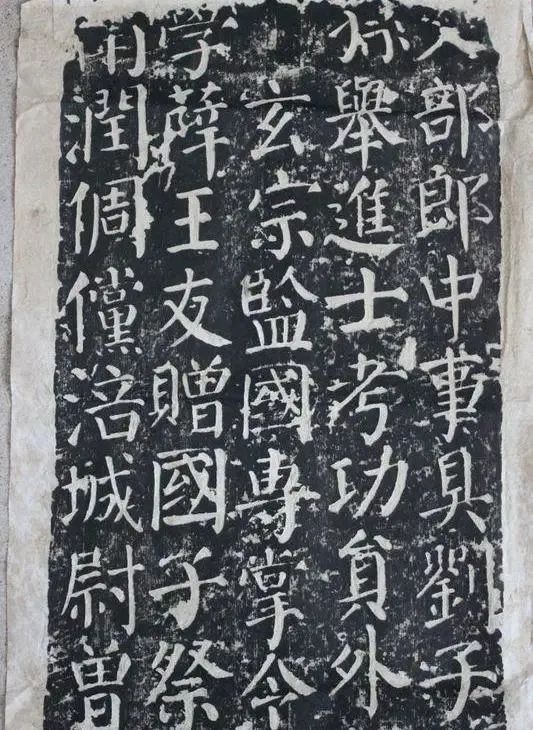 部郎中事具劉子
舉進士考功貟外
玄宗監國專掌令
學薛王友贈國子祭
潤倜儻涪城尉曾